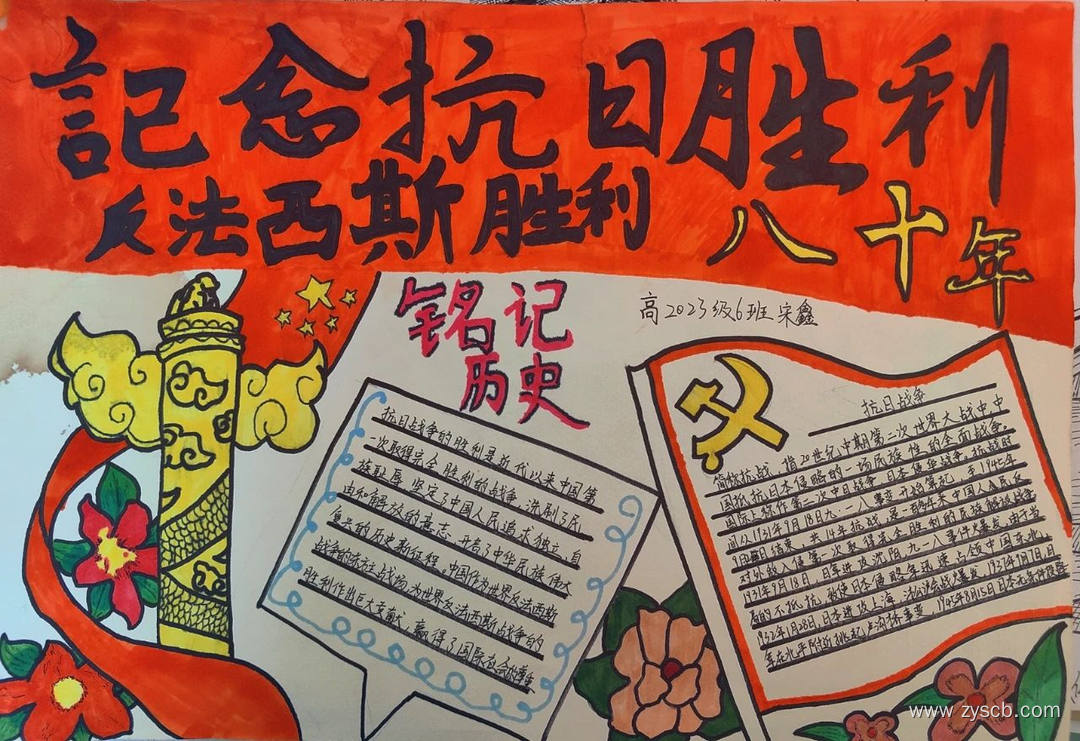 記念抗日胜利
反法西斯胜利
八十年
铭记
历史
高2023级6班 宋鑫
抗日战争的胜利是近代以来中国第
一次取得完全胜利的战争,洗刷了民
族耻辱,坚定了中国人民追求独立、自
由和解放的意志,开启了中华民族伟大
复兴的历史新征程。中国作为世界反法西斯
战争的东方主战场,为世界反法西斯战争的
胜利作出巨大贡献,赢得了国际社会的尊重
抗日战争
简称抗战,指20世纪中期第二次世界大战中,中
国抵抗日本侵略的一场民族性的全面战争。
国际上称作第二次中日战争,日本侵华战争。抗战时
间从1931年9月18日九·一八事变开始算起,至1945年
结束,共14年抗战。
对外敌入侵第一次取得完全胜利的民族解放战争
1931年9月18日,日军进攻沈阳,九一八事件爆发,由于当
局的不抵抗,致使日本侵略军迅速占领中国东北,
1932年1月28日,日本进攻上海
1937年7月7日,日
军在北平附近挑起
1945年8月15日日本无条件投降
www.zyscb.com